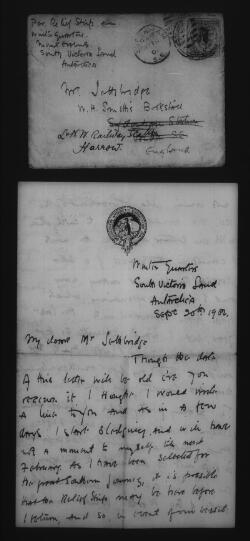 Per Relief Ship
Winter Quarters
South Victoria Land
Antarctica
Mr.
W. H. Smith's Bookstall
L & N W Railway Station
Harrow.
England
Winter Quarters
South Victoria Land
Antarctica
Sept 20th 1902.
My dear Mr
Though the date
of this letter will be old ere you
receive it I thought I would write
a line to you and as in a few
days I start Sledging and will have
not a moment to myself till next
February. As I have been selected for
the great Southern journey, it is possible
that the Relief Ship may be here before
I return and so in event of our vessel